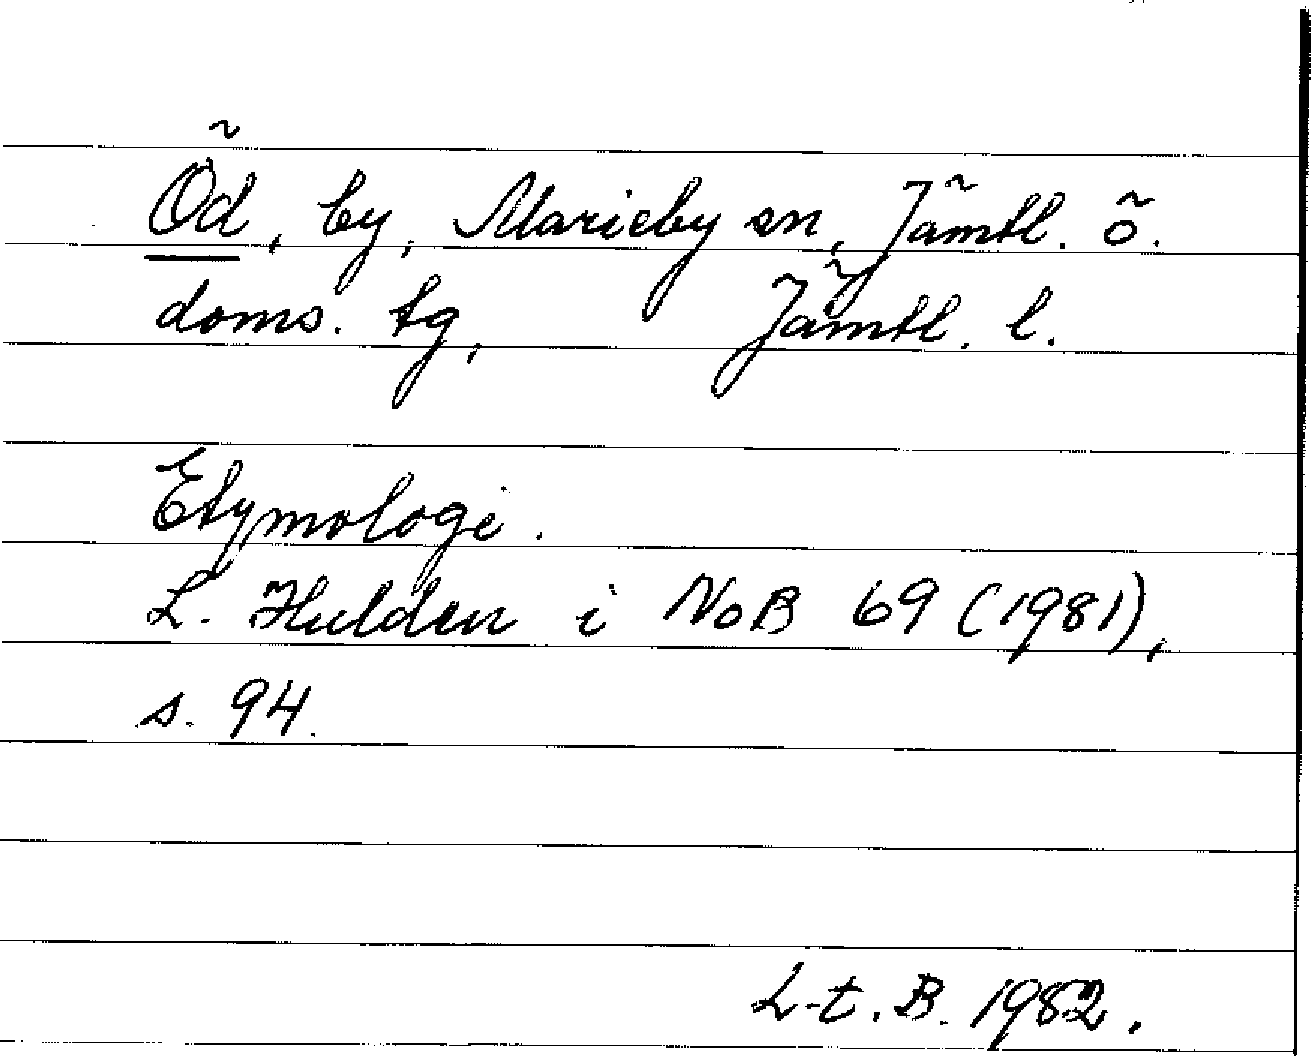 Öd, by, Marieby sn, Jämtl. ö.
doms. tg, Jämtl. l.
Etymologi.
L. Hulden i NoB 69 (1981),
s. 94.
L-t. B. 1982.